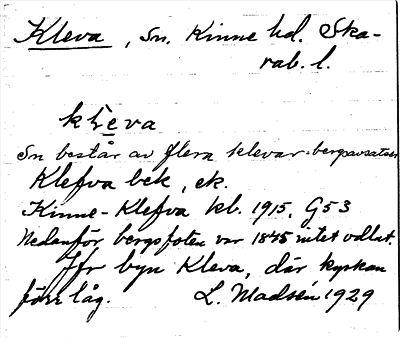 Kleva, sn. Kinne hd. Ska-
rab. l.
kleva
Sn består av flera klevar: bergavsatser
Klefva bek, ek.
Kinne-Klefva kb. 1915, G53
Nedanför bergsfoten var 1845 intet odlat.
Jfr byn Kleva, där kyrkan
förr låg. L. Madsén 1929